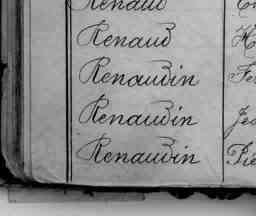 Renaud
Renaud H
Renaudin Fe
Renaudin Je
Renaudin Pie